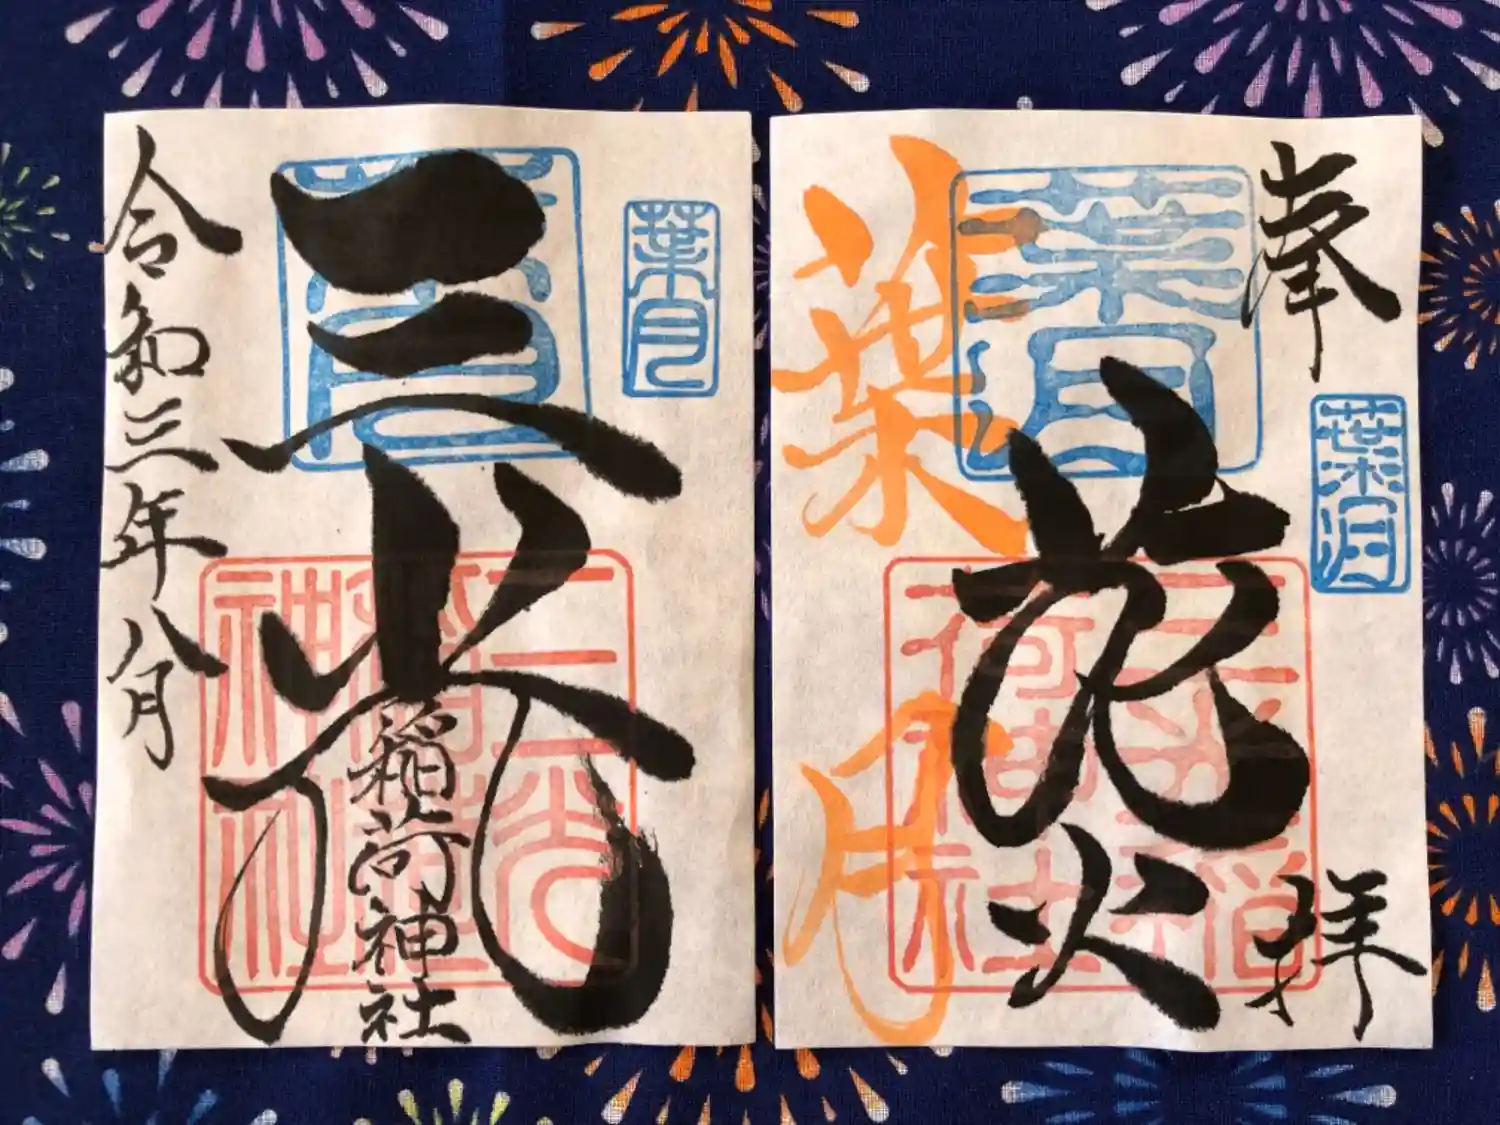 奉拝
葉月
葉月
花火
葉月
三光稲荷神社
葉月
三光
稲荷神社
葉月
葉月
三光稲荷神社
令和三年八月